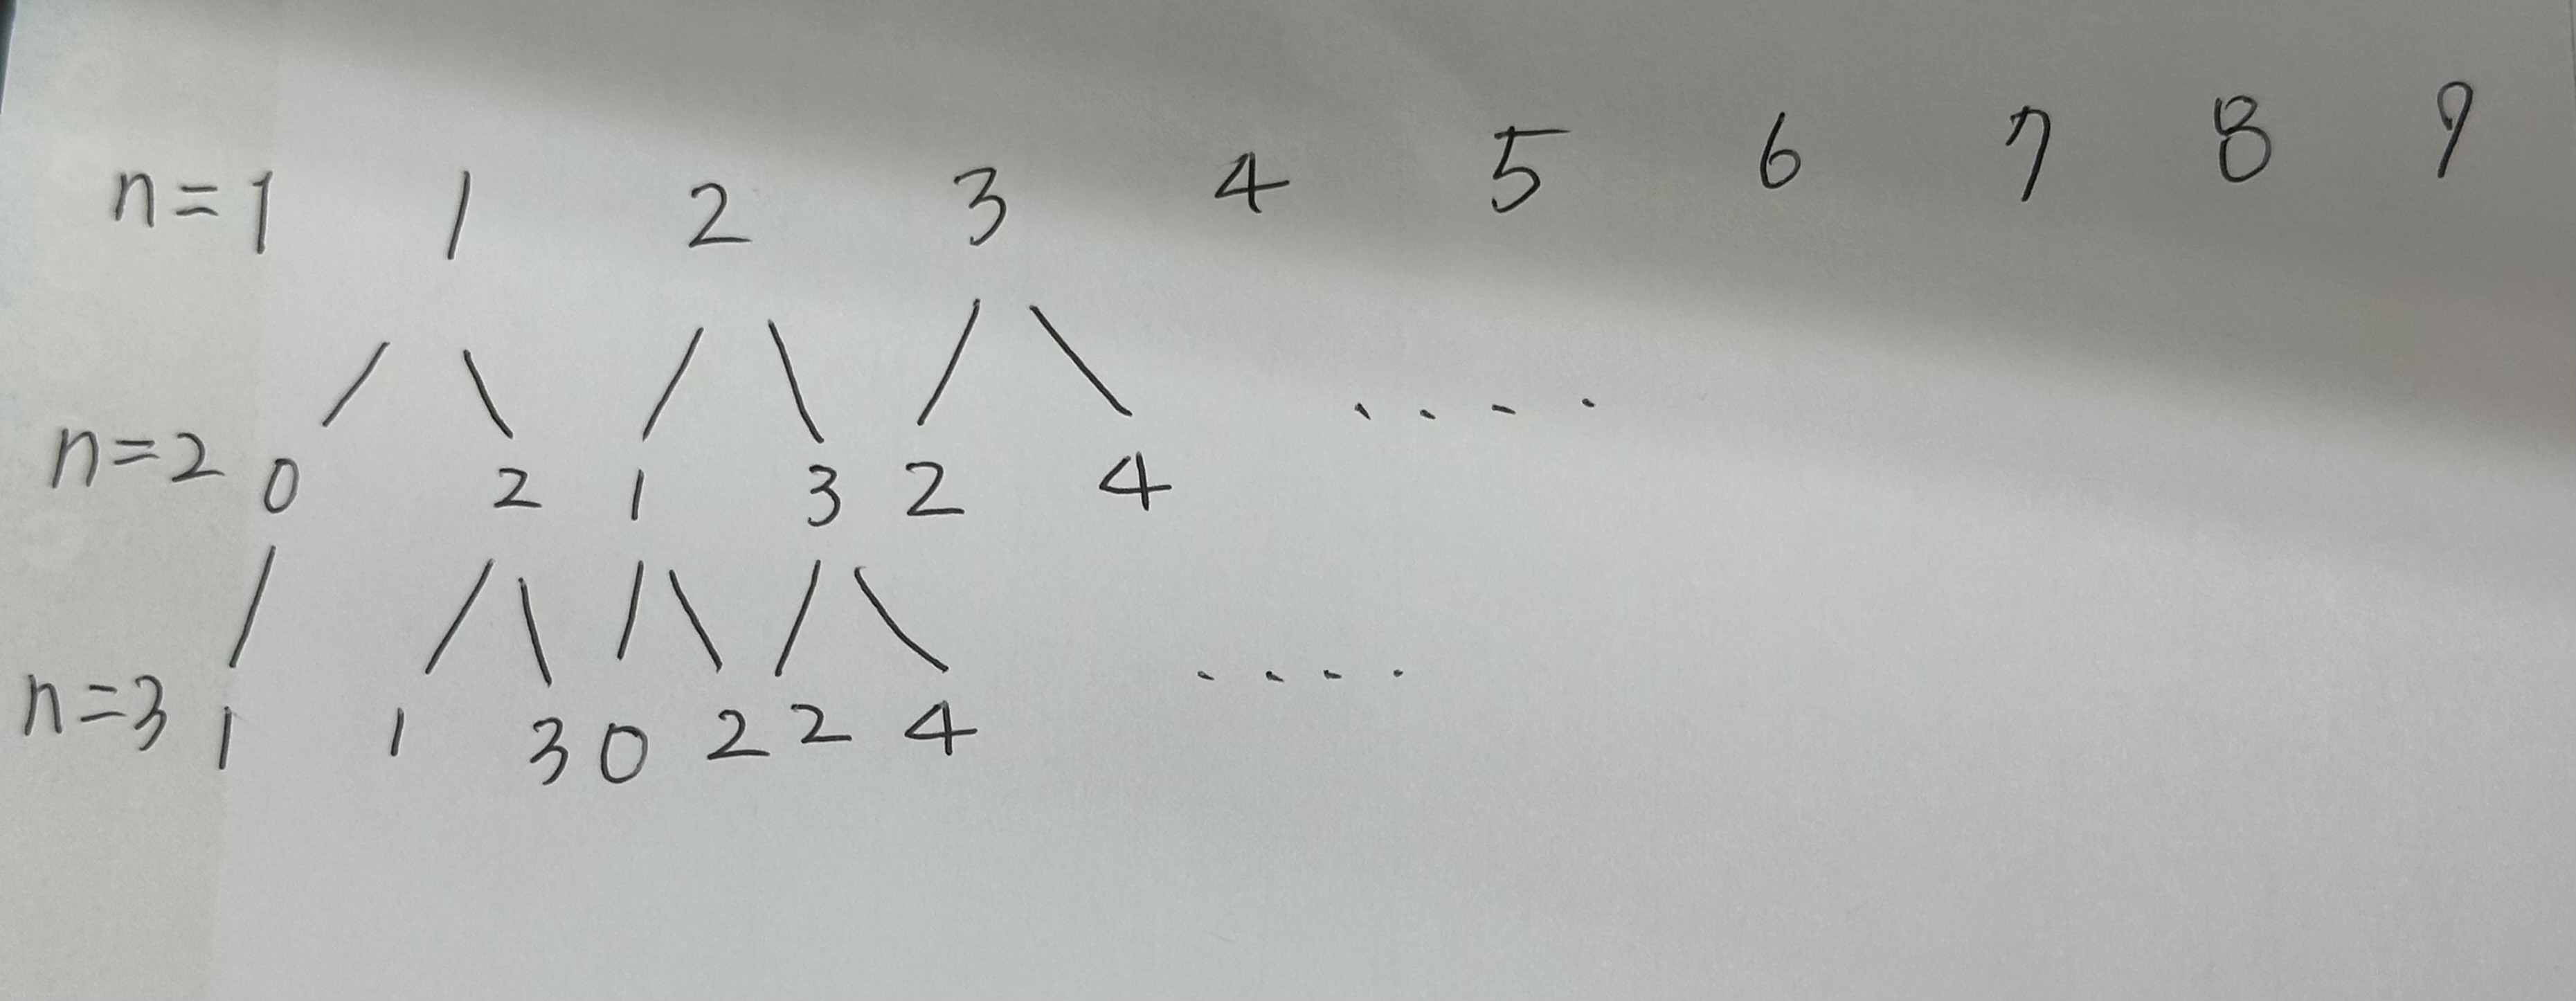 n=1 1 2 3 4 5 6 7 8 9
n=2 0 2 1 3 2 4 ....
n=3 1 1 3 0 2 2 4 ....